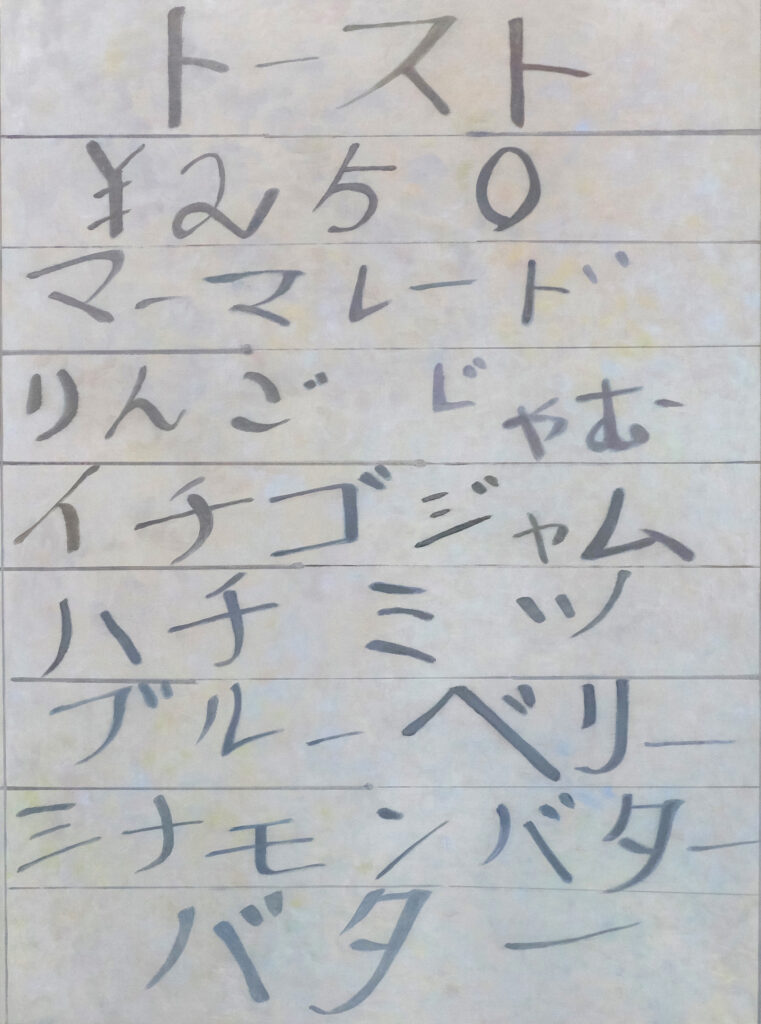 トースト
¥250
マーマレード
りんごじゃむ
イチゴジャム
ハチミツ
ブルーベリー
ミナモンバター
バター